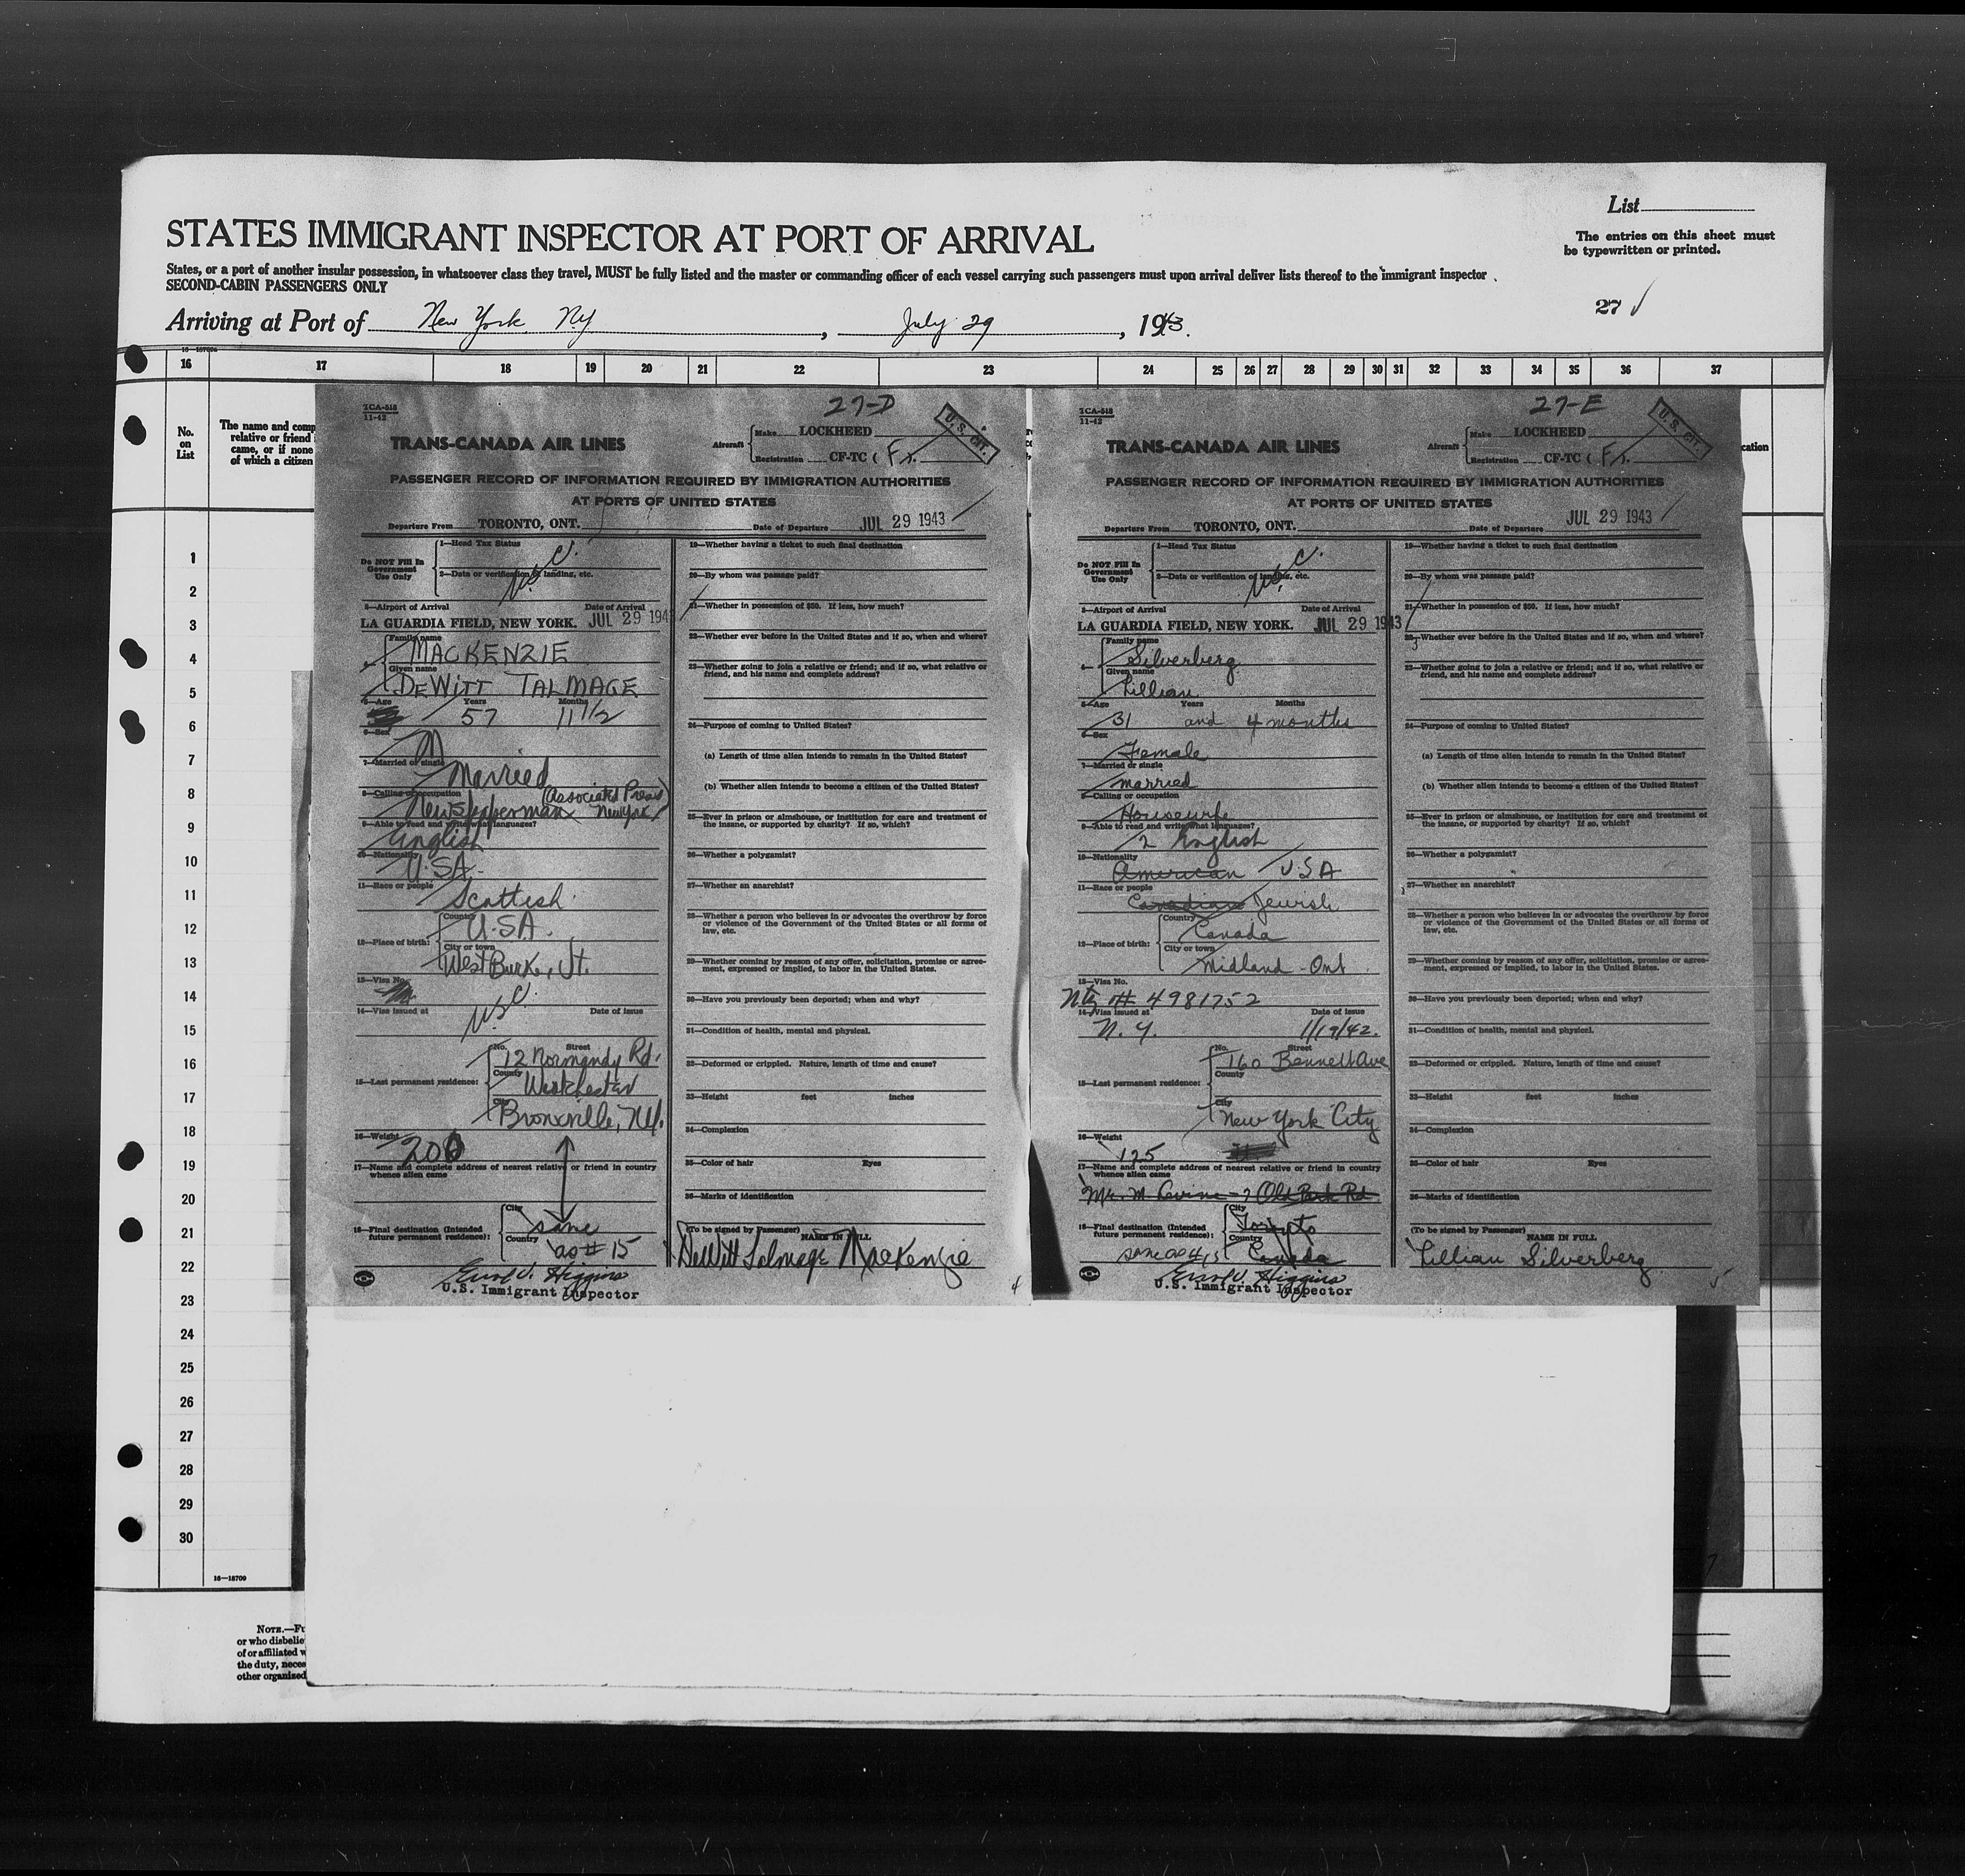 List
The entries on this sheet must
be typewritten or printed.
STATES IMMIGRANT INSPECTOR AT PORT OF ARRIVAL
States, or a port of another insular possession, in whatsoever class they travel, MUST be fully listed and the master or commanding officer of each vessel carrying such passengers must upon arrival deliver lists thereof to the immigrant inspector
SECOND-CABIN PASSENGERS ONLY
27 √
Arriving at Port of New York NY, July 29, 1943.
16 17 18 19 20 21 22 23 24 25 26 27 28 29 30 31 32 33 34 35 36 37
No.
on
List
The name and comp
relative or friend
came, or if none
of which a citizen
cation
1
2
3
4
5
6
7
8
9
10
11
12
13
14
15
16
17
18
19
20
21
22
23
24
25
26
27
28
29
30
16—18709
NOTE.—Fu
or who disbelie
of or affiliated w
the duty, neces
other organized
TCA-518
11-42
27-D
U.S. CIT.
TRANS-CANADA AIR LINES
Aircraft
Make LOCKHEED
Registration CF-TC (
PASSENGER RECORD OF INFORMATION REQUIRED BY IMMIGRATION AUTHORITIES
AT PORTS OF UNITED STATES
Departure From TORONTO, ONT. Date of Departure JUL 29 1943
Do NOT Fill In
Government
Use Only
1—Head Tax Status
2—Data or verification of landing, etc.
USC.
3—Airport of Arrival Date of Arrival
LA GUARDIA FIELD, NEW YORK. JUL 29 194
4— Family name
MACKENZIE
Given name
DEWITT TALMAGE
5—Age Years Months
57 11 1/2
6—Sex
M
7—Married or single
Married
8—Calling or occupation (Associated Press)
Newspaperman New York
9—Able to read and write what languages?
English
10—Nationality
U.S.A.
11—Race or people
Scottish
12—Place of birth:
Country
U.S.A.
City or town
West Burke, Vt.
13—Visa No.
U.S.C.
14—Visa issued at Date of issue
15—Last permanent residence:
No. Street
12 Normandy Rd.
County
Westchester
City
Bronxville, N.Y.
16—Weight
200
17—Name and complete address of nearest relative or friend in country
whence alien came
18—Final destination (Intended
future permanent residence):
City
same
Country
as # 15
Higgins
U.S. Immigrant Inspector
19—Whether having a ticket to such final destination
20—By whom was passage paid?
21—Whether in possession of $50. If less, how much?
22—Whether ever before in the United States and if so, when and where?
23—Whether going to join a relative or friend; and if so, what relative or
friend, and his name and complete address?
24—Purpose of coming to United States?
(a) Length of time alien intends to remain in the United States?
(b) Whether alien intends to become a citizen of the United States?
25—Ever in prison or almshouse, or institution for care and treatment of
the insane, or supported by charity? If so, which?
26—Whether a polygamist?
27—Whether an anarchist?
28—Whether a person who believes in or advocates the overthrow by force
or violence of the Government of the United States or all forms of
law, etc.
29—Whether coming by reason of any offer, solicitation, promise or agree-
ment, expressed or implied, to labor in the United States.
30—Have you previously been deported; when and why?
31—Condition of health, mental and physical.
32—Deformed or crippled. Nature, length of time and cause?
33—Height feet inches
34—Complexion
35—Color of hair Eyes
36—Marks of identification
(To be signed by Passenger) NAME IN FULL
DeWitt Talmage MacKenzie
4
TCA-518
11-42
27-E
U.S. CIT.
TRANS-CANADA AIR LINES
Aircraft
Make LOCKHEED
Registration CF-TC (
PASSENGER RECORD OF INFORMATION REQUIRED BY IMMIGRATION AUTHORITIES
AT PORTS OF UNITED STATES
Departure From TORONTO, ONT. Date of Departure JUL 29 1943
Do NOT Fill In
Government
Use Only
1—Head Tax Status
2—Data or verification of landing, etc.
USC.
3—Airport of Arrival Date of Arrival
LA GUARDIA FIELD, NEW YORK. JUL 29 1943
4— Family name
Silverberg
Given name
Lillian
5—Age Years Months
31 and 4 months
6—Sex
Female
7—Married or single
married
8—Calling or occupation
Housewife
9—Able to read and write what languages?
English
10—Nationality
American USA
11—Race or people
Canadian Jewish
12—Place of birth:
Country
Canada
City or town
Midland - Ont
13—Visa No.
Ntz # 4981752
14—Visa issued at Date of issue
N.Y. 1/19/42.
15—Last permanent residence:
No. Street
160 Bennett Ave
County
City
New York City
16—Weight
125
17—Name and complete address of nearest relative or friend in country
whence alien came
Mr. M Levine - 7 Old Park Rd
18—Final destination (Intended
future permanent residence):
City
Toronto
Country
same as # 15 Canada
Higgins
U.S. Immigrant Inspector
19—Whether having a ticket to such final destination
20—By whom was passage paid?
21—Whether in possession of $50. If less, how much?
22—Whether ever before in the United States and if so, when and where?
23—Whether going to join a relative or friend; and if so, what relative or
friend, and his name and complete address?
24—Purpose of coming to United States?
(a) Length of time alien intends to remain in the United States?
(b) Whether alien intends to become a citizen of the United States?
25—Ever in prison or almshouse, or institution for care and treatment of
the insane, or supported by charity? If so, which?
26—Whether a polygamist?
27—Whether an anarchist?
28—Whether a person who believes in or advocates the overthrow by force
or violence of the Government of the United States or all forms of
law, etc.
29—Whether coming by reason of any offer, solicitation, promise or agree-
ment, expressed or implied, to labor in the United States.
30—Have you previously been deported; when and why?
31—Condition of health, mental and physical.
32—Deformed or crippled. Nature, length of time and cause?
33—Height feet inches
34—Complexion
35—Color of hair Eyes
36—Marks of identification
(To be signed by Passenger) NAME IN FULL
Lillian Silverberg
5